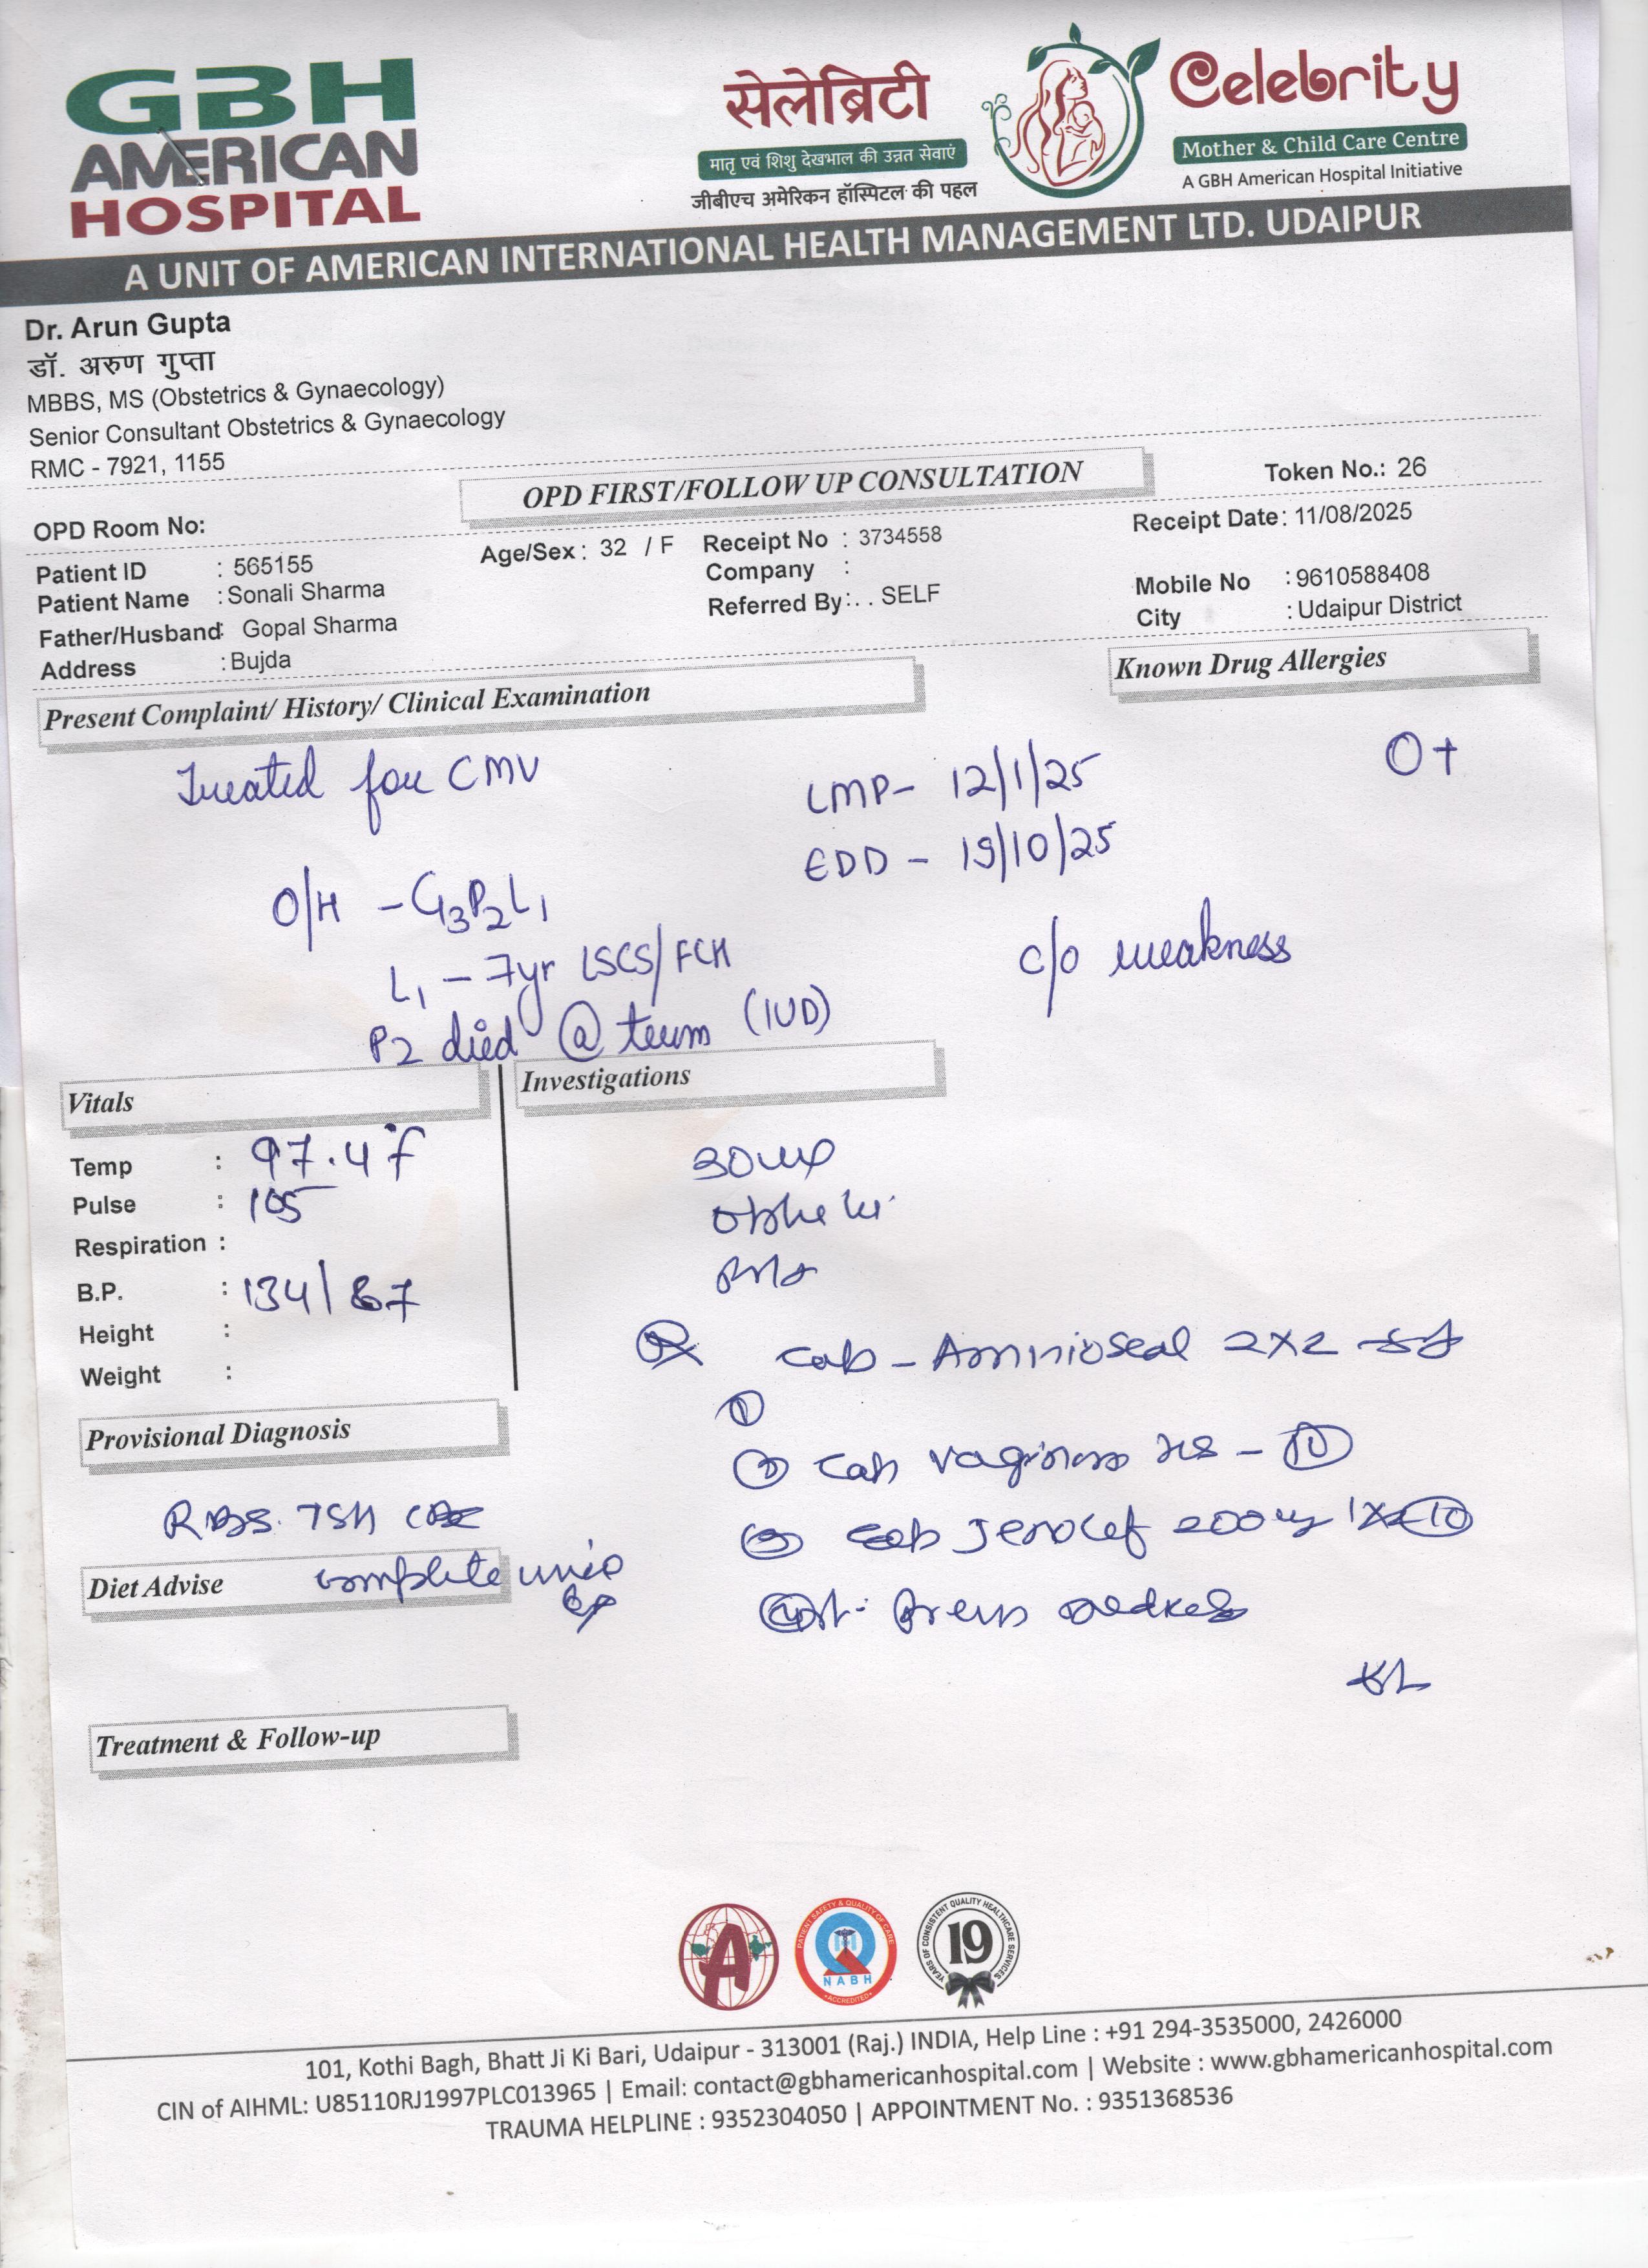 GBH
AMERICAN
HOSPITAL
सेलेब्रिटी
मातृ एवं शिशु देखभाल की उन्नत सेवाएं
जीबीएच अमेरिकन हॉस्पिटल की पहल
Celebrity
Mother & Child Care Centre
A GBH American Hospital Initiative
A UNIT OF AMERICAN INTERNATIONAL HEALTH MANAGEMENT LTD. UDAIPUR
Dr. Arun Gupta
डॉ. अरुण गुप्ता
MBBS, MS (Obstetrics & Gynaecology)
Senior Consultant Obstetrics & Gynaecology
RMC - 7921, 1155
OPD FIRST/FOLLOW UP CONSULTATION
Token No.: 26
OPD Room No:
Age/Sex : 32 / F Receipt No : 3734558 Receipt Date : 11/08/2025
Patient ID : 565155 Company :
Patient Name : Sonali Sharma Referred By : . . SELF Mobile No : 9610588408
Father/Husband : Gopal Sharma City : Udaipur District
Address : Bujda
Present Complaint/ History/ Clinical Examination Known Drug Allergies
Treated for CMV LMP- 12/1/25 O+
EDD - 19/10/25
O/H - G3P2L1
L1 - 7yr LSCS/FCH c/o weakness
P2 died @ term (IUD)
Vitals Investigations
Temp : 97.4°f
Pulse : 105
Respiration :
B.P. : 134/87
Height :
Weight :
Rx cap - Amnioseal 2X2
①
Provisional Diagnosis
② Cap HS - 10
RBS. TSH CBC
③ 200mg 1X2 10
Diet Advise complete
④
Treatment & Follow-up
A
PATIENT SAFETY & QUALITY OF CARE
NABH
ACCREDITED
YEARS OF CONSISTENT QUALITY HEALTHCARE SERVICES
19
101, Kothi Bagh, Bhatt Ji Ki Bari, Udaipur - 313001 (Raj.) INDIA, Help Line : +91 294-3535000, 2426000
CIN of AIHML: U85110RJ1997PLC013965 | Email: contact@gbhamericanhospital.com | Website : www.gbhamericanhospital.com
TRAUMA HELPLINE : 9352304050 | APPOINTMENT No. : 9351368536